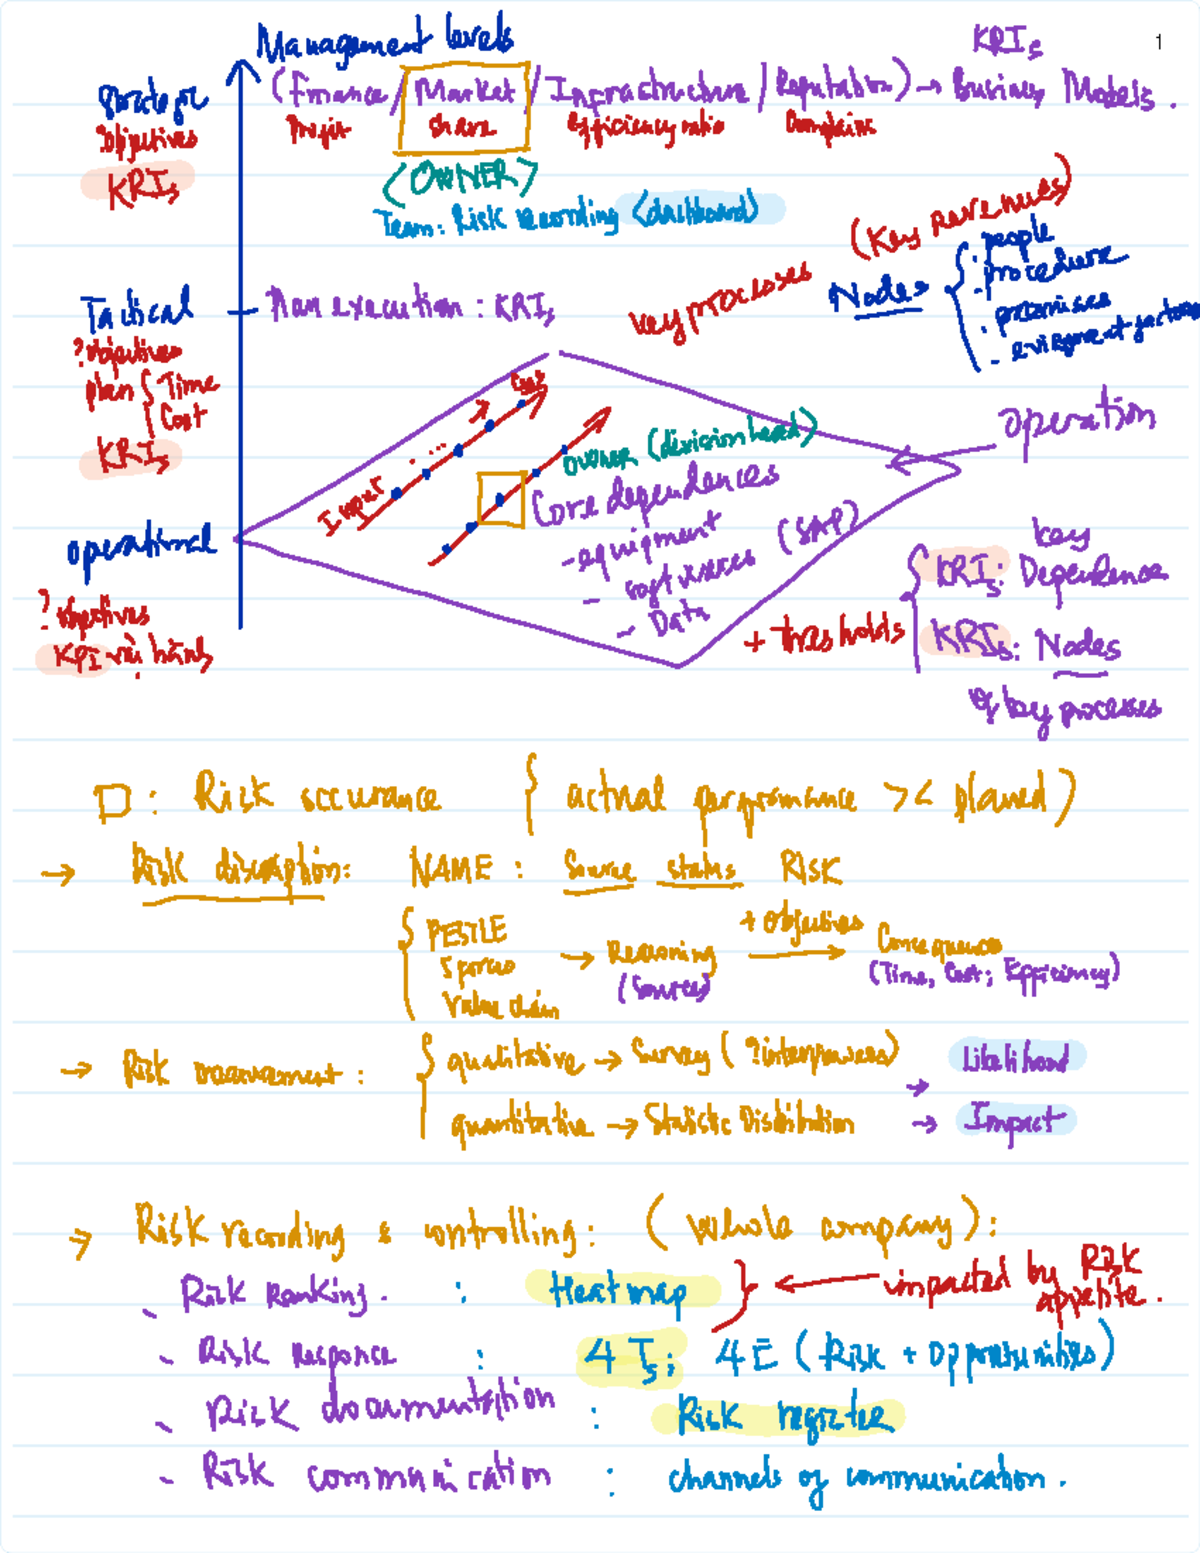 1
Management levels
KRIs
Strategic
(finance / Market / Infrastructure / Reputation) → Business Models.
Profit share Efficiency ratio Complains
?objectives
KRIs
<OWNER>
Team: Risk recording (dashboard)
(Key revenues)
key processes
Nodes { . people
- procedure
. premises
- enviroment factors
Tactical
Plan execution : KRIs
? objectives
plan { Time
Cost
KRIs
Operational
? objectives
KPI vận hành
Input ... Cost
operation
owner (division head)
Core dependences
- equipment
- softwares (SAP)
- Data
+ thresholds
key
KRIs: Dependence
KRIs: Nodes
of key processes
□ : Risk occurance { actual performance >< planed )
→ Risk discription: NAME : Source status RISK
{ PESTLE
5 forces
Value chain
→ Reasoning
(Sources)
+ Objectives →
Consequences
(Time, Cost; Efficiency)
→ Risk measurement : { qualitative → Survey ( ?interviewees) → Likelihood
quantitative → Statistic Distribution → Impact
→ Risk recording & controlling : ( whole company ) :
- Risk Ranking. : Heat map } ← impacted by Risk appetite.
- Risk Response : 4Ts; 4E (Risk + Opportunities)
- Risk documentation : Risk register
- Risk communication : channels of communication.